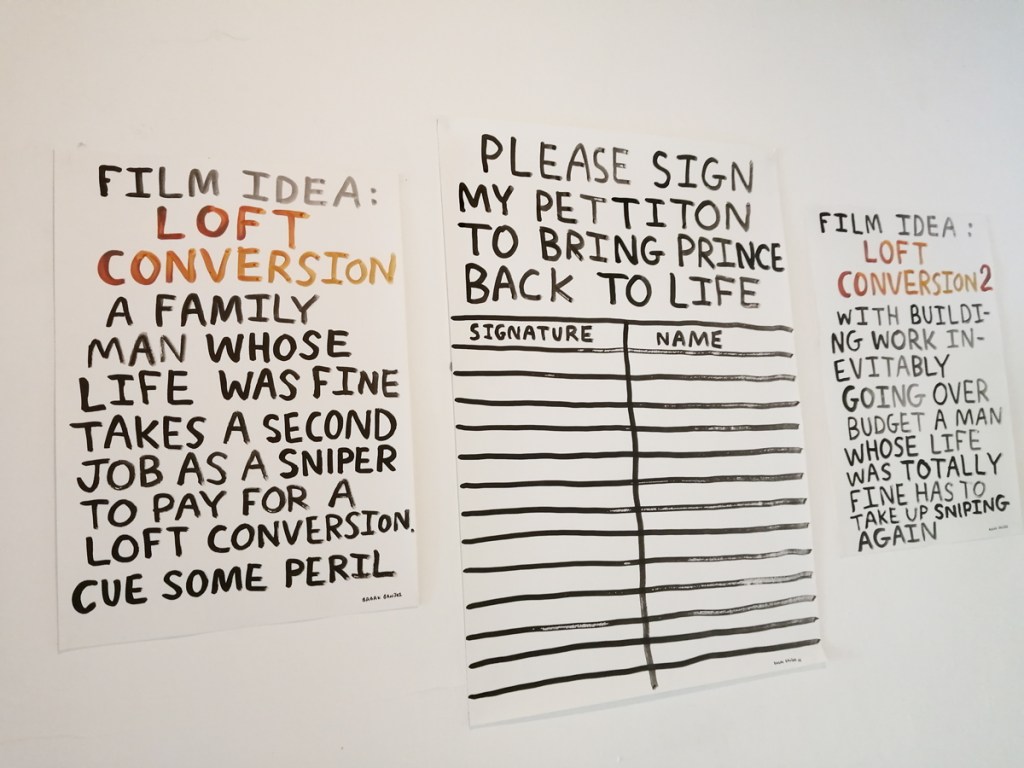 FILM IDEA:
LOFT
CONVERSION
A FAMILY
MAN WHOSE
LIFE WAS FINE
TAKES A SECOND
JOB AS A SNIPER
TO PAY FOR A
LOFT CONVERSION.
CUE SOME PERIL
PLEASE SIGN
MY PETTITON
TO BRING PRINCE
BACK TO LIFE
SIGNATURE NAME
FILM IDEA:
LOFT
CONVERSION 2
WITH BUILDI-
NG WORK IN-
EVITABLY
GOING OVER
BUDGET A MAN
WHOSE LIFE
WAS TOTALLY
FINE HAS TO
TAKE UP SNIPING
AGAIN